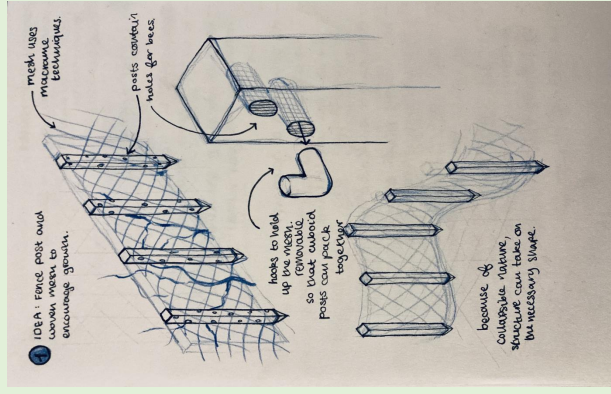 1
IDEA: Fence post and
woven mesh to
encourage growth.
mesh uses
macrame
techniques.
posts contain
holes for bees.
hooks to hold
up the mesh.
removable
so that cuboid
posts can pack
together
because of
collapsible nature,
structure can take on
the necessary shape.